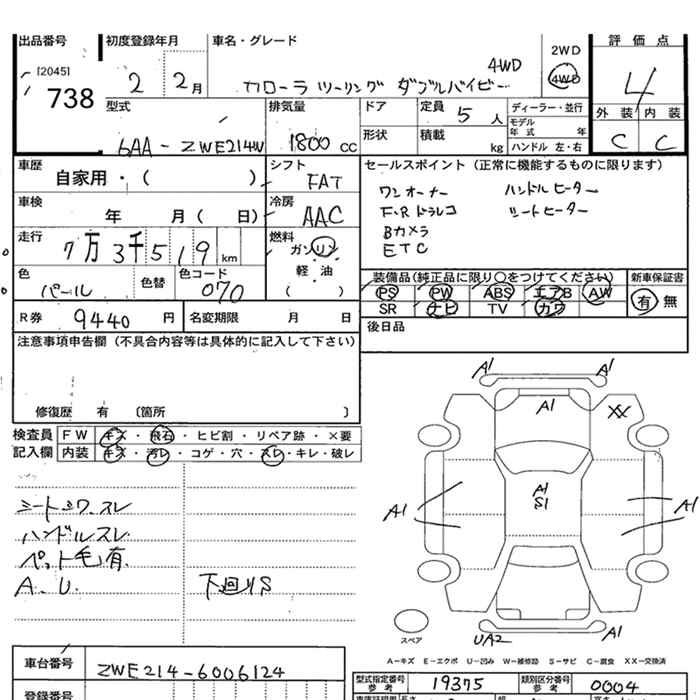 出品番号 初度登録年月 車名・グレード 2WD 評価点
[2045] 4WD 4WD
738 2 2月 カローラ ツーリング ダブルバイビー 4
型式 排気量 ドア 定員 5人 ディーラー・並行 外装 内装
モデル年式 年
形状 積載 kg ハンドル 左・右 C C
6AA-ZWE214W 1800cc
車歴 シフト セールスポイント (正常に機能するものに限ります)
自家用・( ) FAT ワンオーナー ハンドルヒーター
車検 冷房 F・Rドラレコ シートヒーター
年 月( 日) AAC Bカメラ
走行 燃料 ETC
7万3千519km ガソリン
色 色替 色コード 軽油 装備品(純正品に限り○をつけてください) 新車保証書
パール 070 ( ) PS PW ABS エアB AW 有 無
R券 9440円 名変期限 月 日 SR ナビ TV カワ
注意事項申告欄(不具合内容等は具体的に記入して下さい) 後日品
修復歴 有 〔箇所 〕
検査員 FW キズ・飛石・ヒビ割・リペア跡・×要
記入欄 内装 キズ・汚レ・コゲ・穴・スレ・キレ・破レ
シートシワ.スレ
ハンドルスレ
ペット毛有
A.U. 下回りS
A1 A1
A1 XX
A1
A1 S1 A1
UA2 A1
スペア
A-キズ E-エクボ U-凹み W-補修跡 S-サビ C-腐食 XX-交換済
車台番号 ZWE214-6006124
型式指定番号 参考 19375 類別区分番号 参考 0004
登録番号